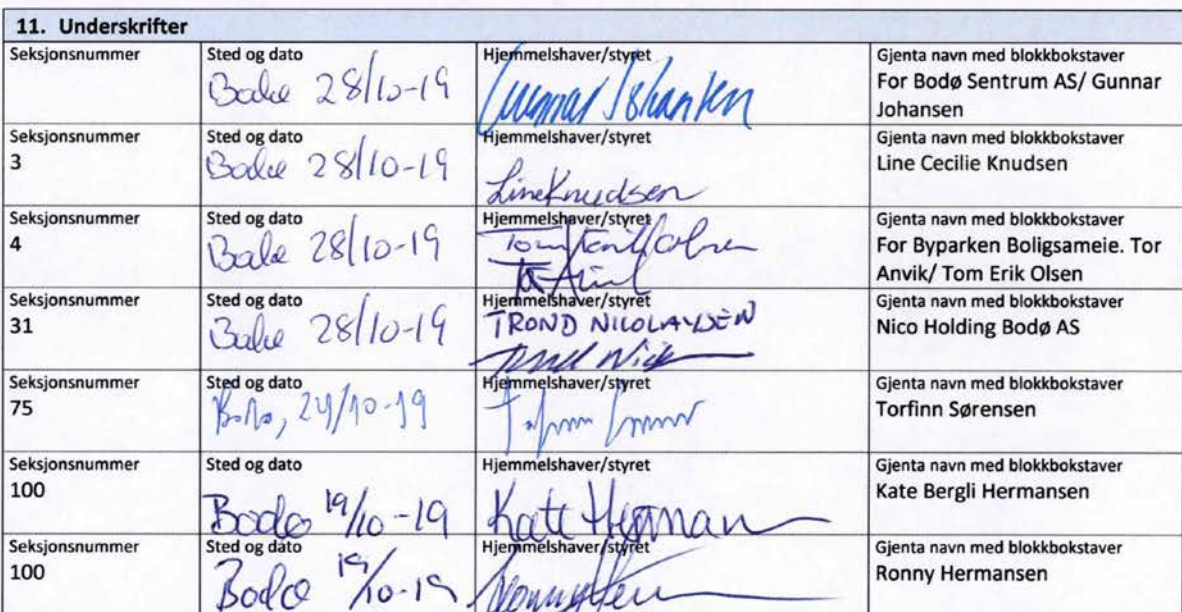 11. Underskrifter
Seksjonsnummer
Sted og dato
Bodø 28/10-19
Hjemmelshaver/styret
Gunnar Johansen
Gjenta navn med blokkbokstaver
For Bodø Sentrum AS/ Gunnar
Johansen
Seksjonsnummer
3
Sted og dato
Bodø 28/10-19
Hjemmelshaver/styret
Line Knudsen
Gjenta navn med blokkbokstaver
Line Cecilie Knudsen
Seksjonsnummer
4
Sted og dato
Bodø 28/10-19
Hjemmelshaver/styret
Tom Erik Olsen
Tor Anvik
Gjenta navn med blokkbokstaver
For Byparken Boligsameie. Tor
Anvik/ Tom Erik Olsen
Seksjonsnummer
31
Sted og dato
Bodø 28/10-19
Hjemmelshaver/styret
TROND NICOLAYSEN
Gjenta navn med blokkbokstaver
Nico Holding Bodø AS
Seksjonsnummer
75
Sted og dato
Bodø, 24/10-19
Hjemmelshaver/styret
Gjenta navn med blokkbokstaver
Torfinn Sørensen
Seksjonsnummer
100
Sted og dato
Bodø 19/10-19
Hjemmelshaver/styret
Kate Herman
Gjenta navn med blokkbokstaver
Kate Bergli Hermansen
Seksjonsnummer
100
Sted og dato
Bodø 19/10-19
Hjemmelshaver/styret
Gjenta navn med blokkbokstaver
Ronny Hermansen